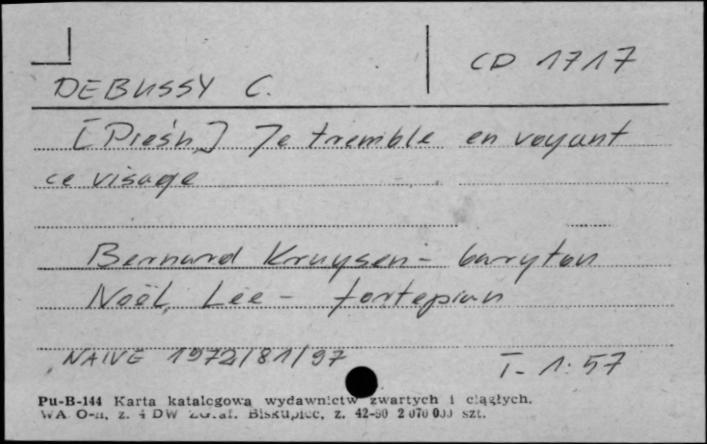 CD 1717
DEBUSSY C.
[Pieśń] Je tremble en voyant
ce visage
Bernard Kruysen - baryton
Noël Lee - fortepian
NAIVE 1972/81/97 T- 1:57
Pu-B-144 Karta katalogowa wydawnictw zwartych i ciągłych.
WA O-n, z. 4 DW Zgraf. Biskupiec, z. 42-80 2 070 000 szt.